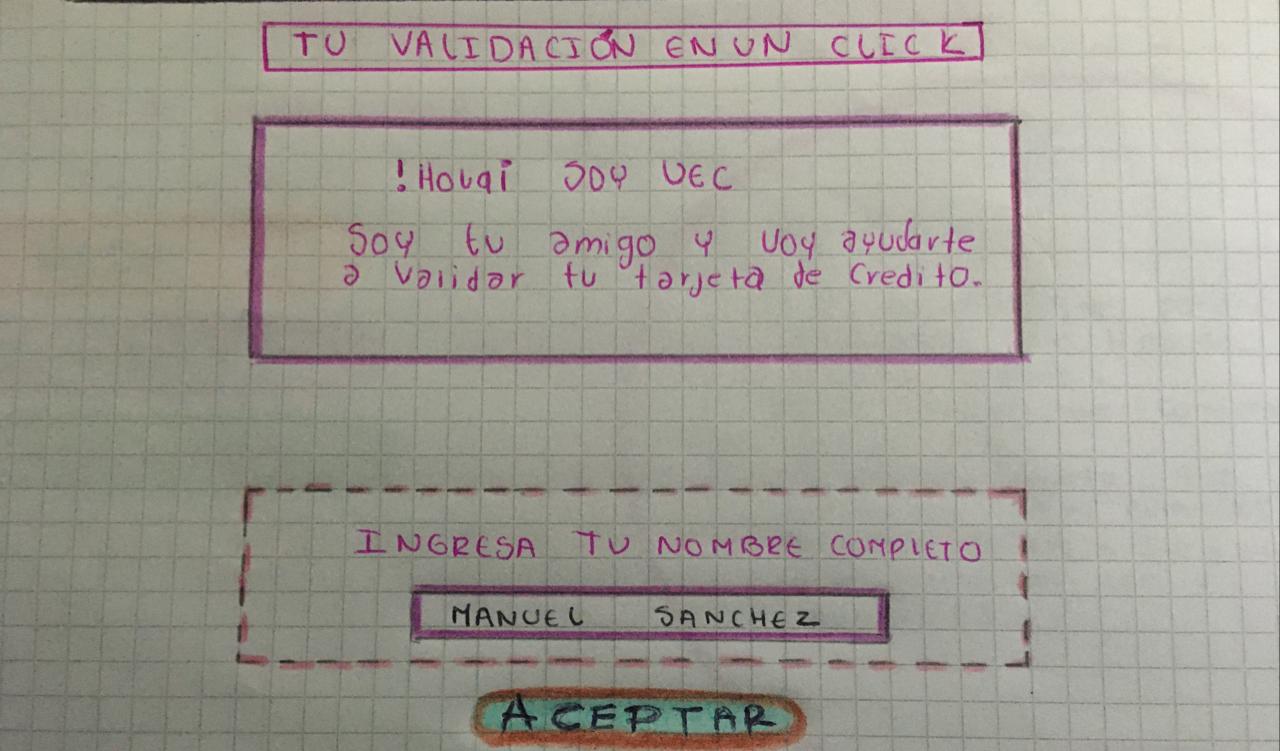 TU VALIDACIÓN EN UN CLICK
!Hola¡ SOY VEC
Soy tu amigo y voy ayudarte
a validar tu tarjeta de credito.
INGRESA TU NOMBRE COMPLETO
MANUEL SANCHEZ
ACEPTAR